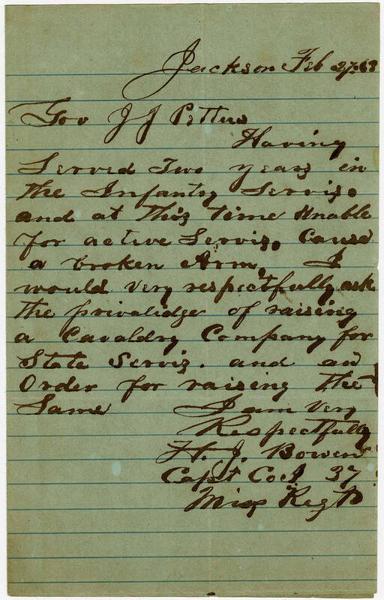 Jackson Feb 27-63
Gov J J Pettus
Having
Served Two years in
the Infantry Servis.
and at this time Unable
for active Servis. Cause
a broken Arm, I
would very respectfully ask
the privalidge of raising
a Cavaldry Company for
State Servis. and an
Order for raising the
Same I am very
Respectfully
H. J. Bowen
Capt Co 37
Miss Regt